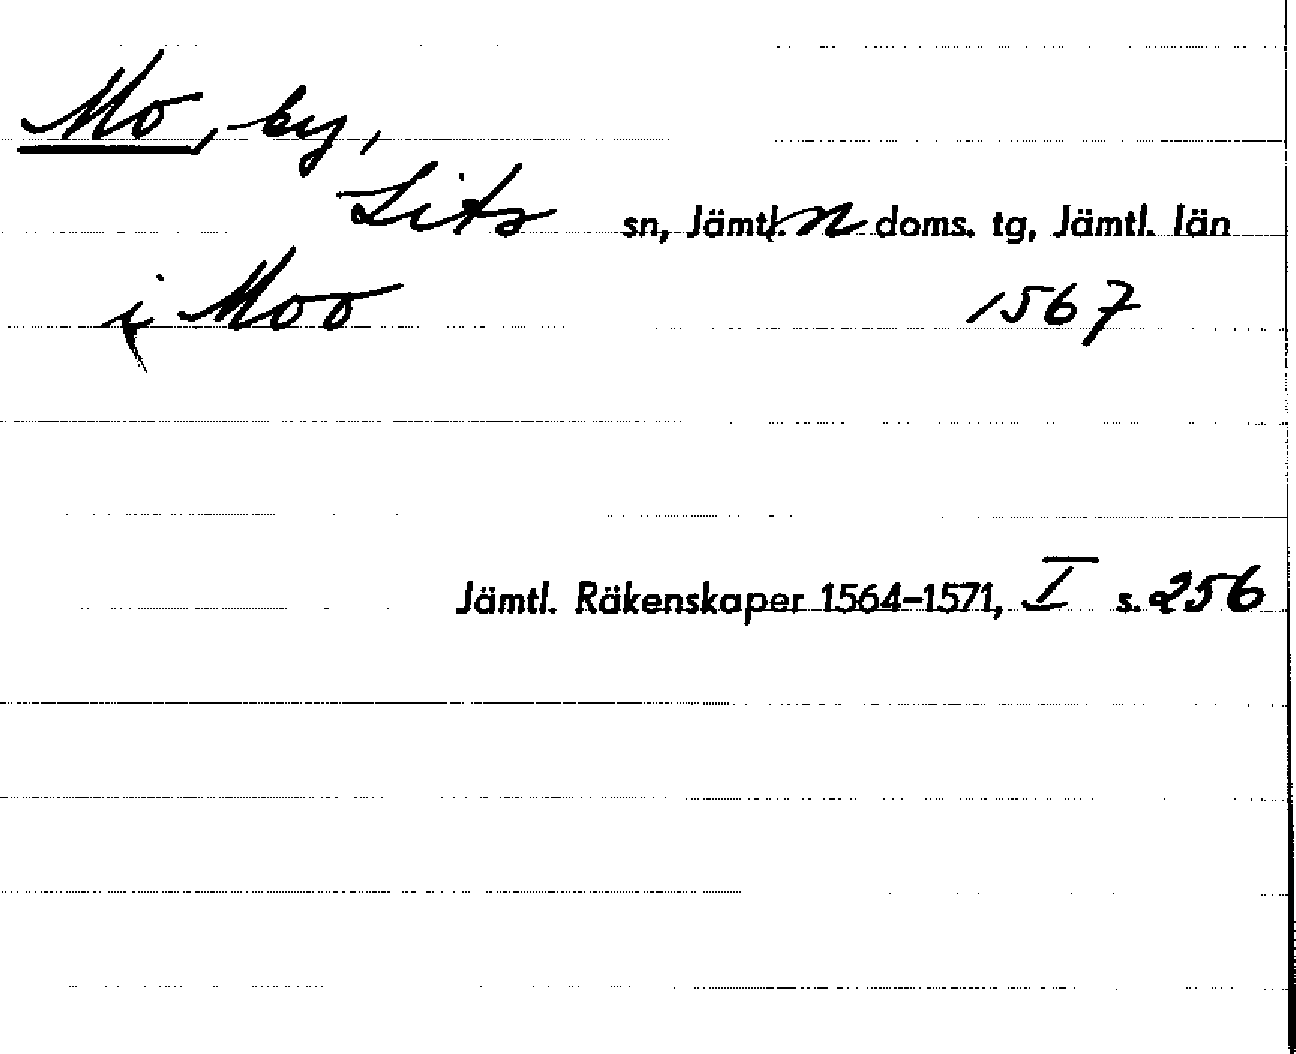 Mo, by,
Lits sn, Jämtl. n doms. tg, Jämtl. län
i Moo 1567
Jämtl. Räkenskaper 1564-1571, I s. 256